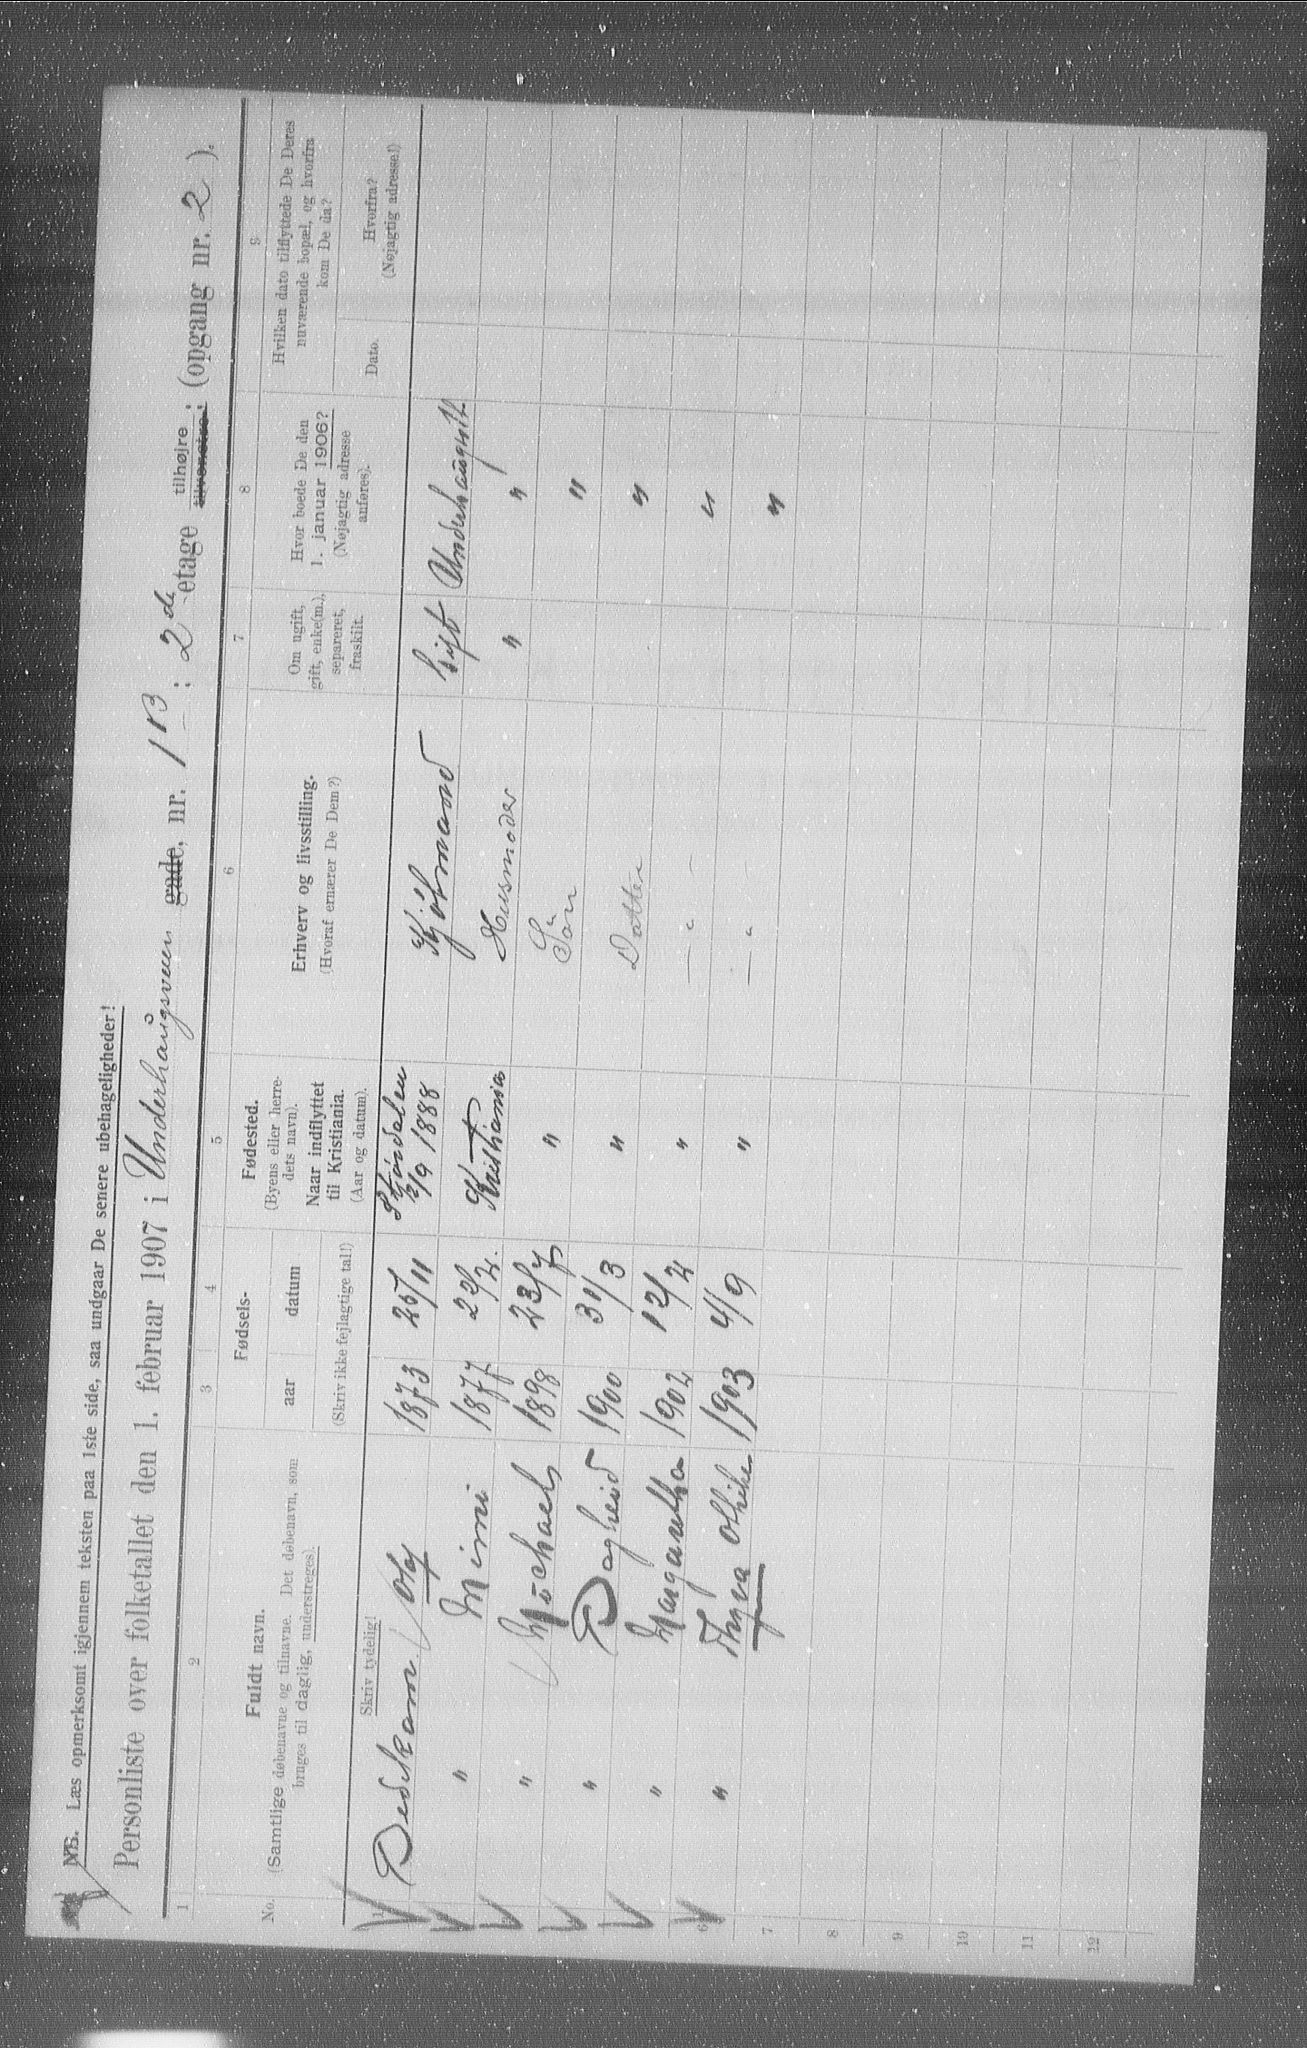 NB. Læs opmerksomt igjennem teksten paa 1ste side, saa undgaar De senere ubehageligheder!
Personliste over folketallet den 1. februar 1907 i Underhaugsveien gade, nr. 1 B : 2 den etage tilhøjre tilvenstre ; (opgang nr. 2 ).
1 2 3 4 5 6 7 8 9
No.
Fuldt navn.
(Samtlige døbenavne og tilnavne. Det døbenavn, som
bruges til daglig, understreges).
Skriv tydelig!
Fødsels-
aar datum
(Skriv ikke fejlagtige tal!)
Fødested.
(Byens eller herre-
dets navn).
Naar indflyttet
til Kristiania.
(Aar og datum).
Erhverv og livsstilling.
(Hvoraf ernærer De Dem?)
Om ugift,
gift, enke(m.),
separeret,
fraskilt.
Hvor boede De den
1. januar 1906?
(Nøjagtig adresse
anføres).
Hvilken dato tilflyttede De Deres
nuværende bopæl, og hvorfra
kom De da?
Dato.
Hvorfra?
(Nøjagtig adresse!)
1 Dedekam Olaf 1873 25/11 Stjørdalen 2/9 1888 Kjøbmand Gift Underhaugsvt
" Mimi 1877 22/4. Kristiania Husmoder " "
" Michael 1898 23/7 " Søn "
" Dagheid 1900 31/3 " Datter "
" Margaretha 1902 12/4 " — " — "
6 " Thyra Othilie 1903 4/9 " — " — "
7
8
9
10
11
12